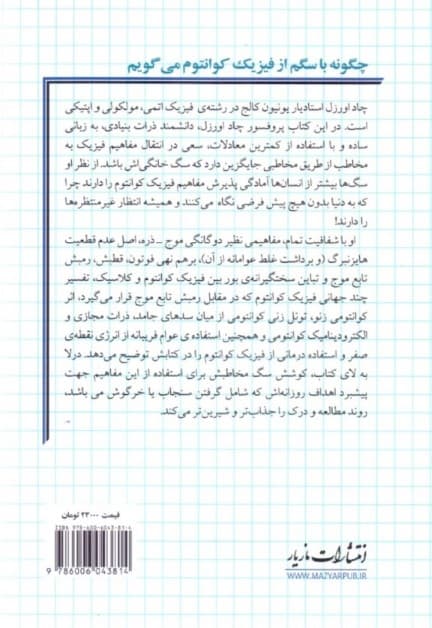 چگونه با سگم از فیزیک کوانتوم می‌گویم
چاد اورزل استادیار یونیون کالج در رشته‌ی فیزیک اتمی، مولکولی و اپتیکی
است. در این کتاب پروفسور چاد اورزل، دانشمند ذرات بنیادی، به زبانی
ساده و با استفاده از کمترین معادلات، سعی در انتقال مفاهیم فیزیک به
مخاطب از طریق مخاطبی جایگزین دارد که سگ خانگی‌اش باشد. از نظر او
سگ‌ها بیشتر از انسان‌ها آمادگی پذیرش مفاهیم فیزیک کوانتوم را دارند چرا
که به دنیا بدون هیچ پیش فرضی نگاه می‌کنند و همیشه انتظار غیرمنتظره‌ها
را دارند!
او با شفافیت تمام، مفاهیمی نظیر دوگانگی موج – ذره، اصل عدم قطعیت
هایزنبرگ (و برداشت غلط عوامانه از آن)، برهم نهی فوتون، قطبش، رمبش
تابع موج و تباین سختگیرانه‌ی بور بین فیزیک کوانتوم و کلاسیک، تفسیر
چند جهانی فیزیک کوانتوم که در مقابل رمبش تابع موج قرار می‌گیرد، اثر
کوانتومی زنو، تونل زنی کوانتومی از میان سدهای جامد، ذرات مجازی و
الکترودینامیک کوانتومی و همچنین استفاده‌ی عوام فریبانه از انرژی نقطه‌ی
صفر و استفاده درمانی از فیزیک کوانتوم را در کتابش توضیح می‌دهد. در لا
به لای کتاب، کوشش سگ مخاطبش برای استفاده از این مفاهیم جهت
پیشبرد اهداف روزانه‌اش که شامل گرفتن سنجاب یا خرگوش می باشد،
روند مطالعه و درک را جذاب‌تر و شیرین‌تر می‌کند.
قیمت ۲۳۰۰۰ تومان
ISBN 978-600-6043-81-4
9 786006 043814
انتشارات مازیار
WWW.MAZYARPUB.IR